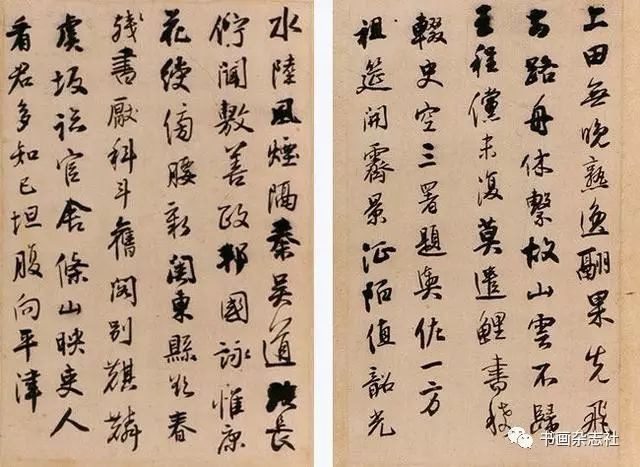 上田無晚熟逸翮果先飛
去路舟休繫故山雲不歸
王程儻未復莫遣鯉書稀
輟史空三署題輿佐一方
祖筵開霽景征陌值韶光
水陸風煙隔秦吳道路長
佇聞敷善政邦國詠惟康
花綬傍腰新關東縣欲春
殘書厭科斗舊閣別麒麟
虞坂臨官舍條山映吏人
看君多知已坦腹向平津
书画杂志社